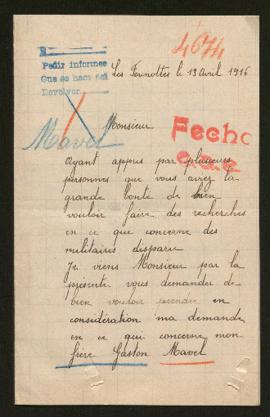 4674
Pedir informes
Que se haga así
Devolver
Les Fourottes le 13 avril 1916
Monsieur
Mavel
Fecho
Ayant appris par plusieurs
personnes que vous aviez la
grande bonté de bien
vouloir faire des recherches
en ce que concerne des
militaires disparu
Je viens Monsieur par la
presente vous demander de
bien vouloir prendre en
considération ma demande
en ce qui concerne mon
frère Gaston Mavel